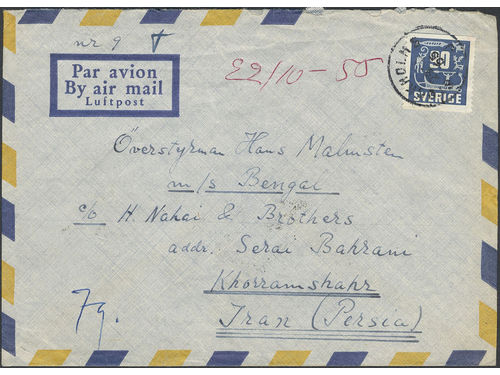 nr 9
22/10-55
Par avion
By air mail
Luftpost
SVERIGE
Överstyrman Hans Malmsten
m/s Bengal
c/o H. Nahai & Brothers
addr. Serai Bahrani
Khorramshahr
Iran (Persia)